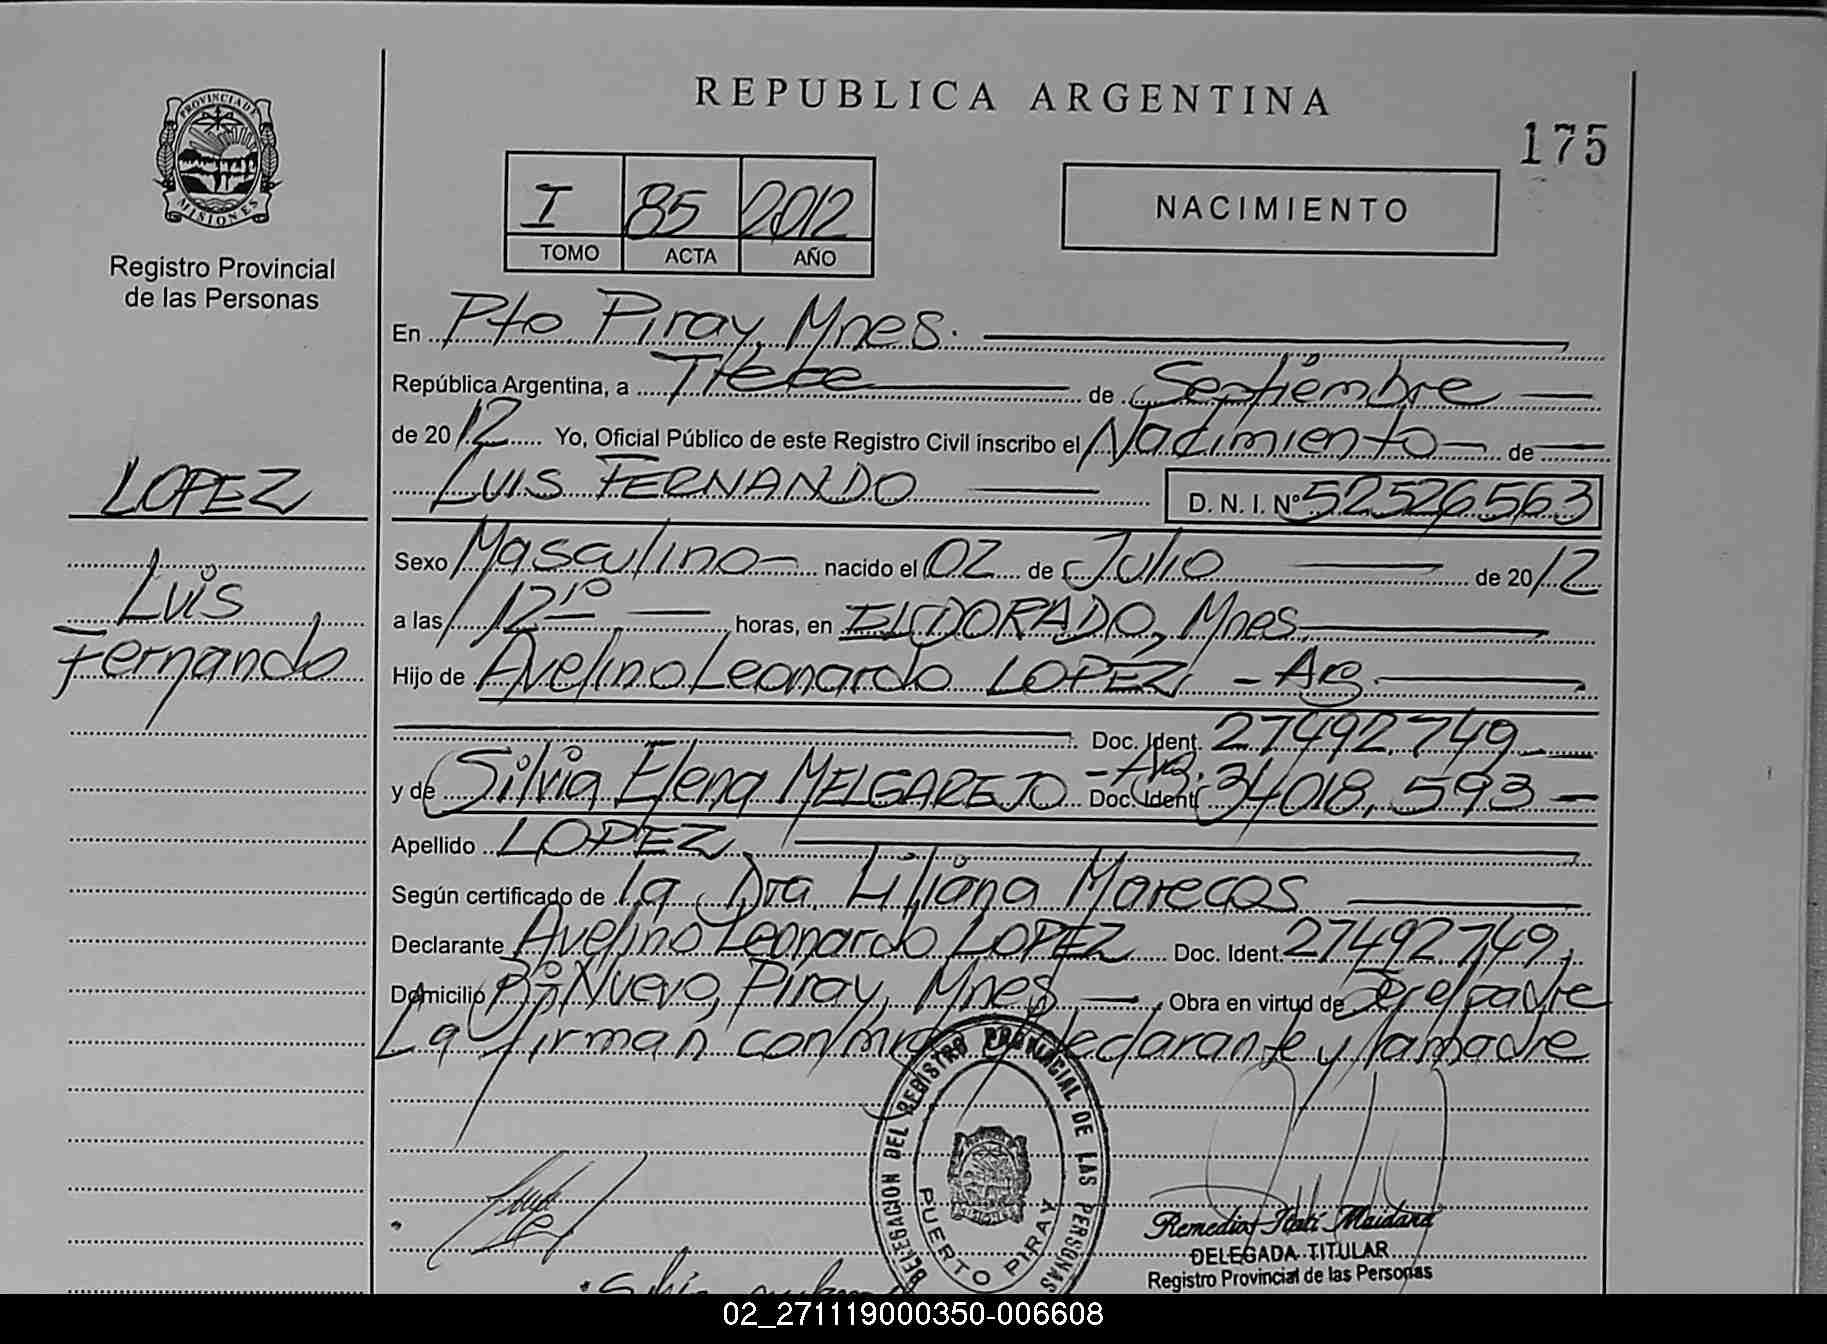 REPUBLICA ARGENTINA
175
PROVINCIA D
MISIONES
Registro Provincial
de las Personas
I 85 2012
TOMO ACTA AÑO
NACIMIENTO
En Pto Piray, Mnes.
República Argentina, a Trece de Septiembre
de 2012 Yo, Oficial Público de este Registro Civil inscribo el Nacimiento de
LUIS FERNANDO D. N. I. Nº 52526563
LOPEZ
Luis
Fernando
Sexo Masculino nacido el 02 de Julio de 2012
a las 12¹⁰ horas, en ELDORADO, Mnes.
Hijo de Avelino Leonardo LOPEZ - Arg.
Doc. Ident. 27492749
y de Silvia Elena MELGAREJO - Arg. Doc. Ident. 34018.593
Apellido LOPEZ
Según certificado de la Dra. Liliana Marecos
Declarante Avelino Leonardo LOPEZ Doc. Ident. 27492749,
Domicilio Bº Nuevo, Piray, Mnes Obra en virtud de Ser el padre
La firman conmigo declarante y la madre
DELEGACION DEL REGISTRO PROVINCIAL DE LAS PERSONAS
MISIONES
PUERTO PIRAY
Remedios Itatí Maidana
DELEGADA TITULAR
Registro Provincial de las Personas
02_271119000350-006608